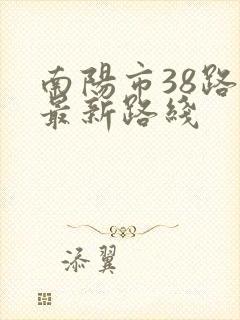 南陽市38路
最新路綫
添翼